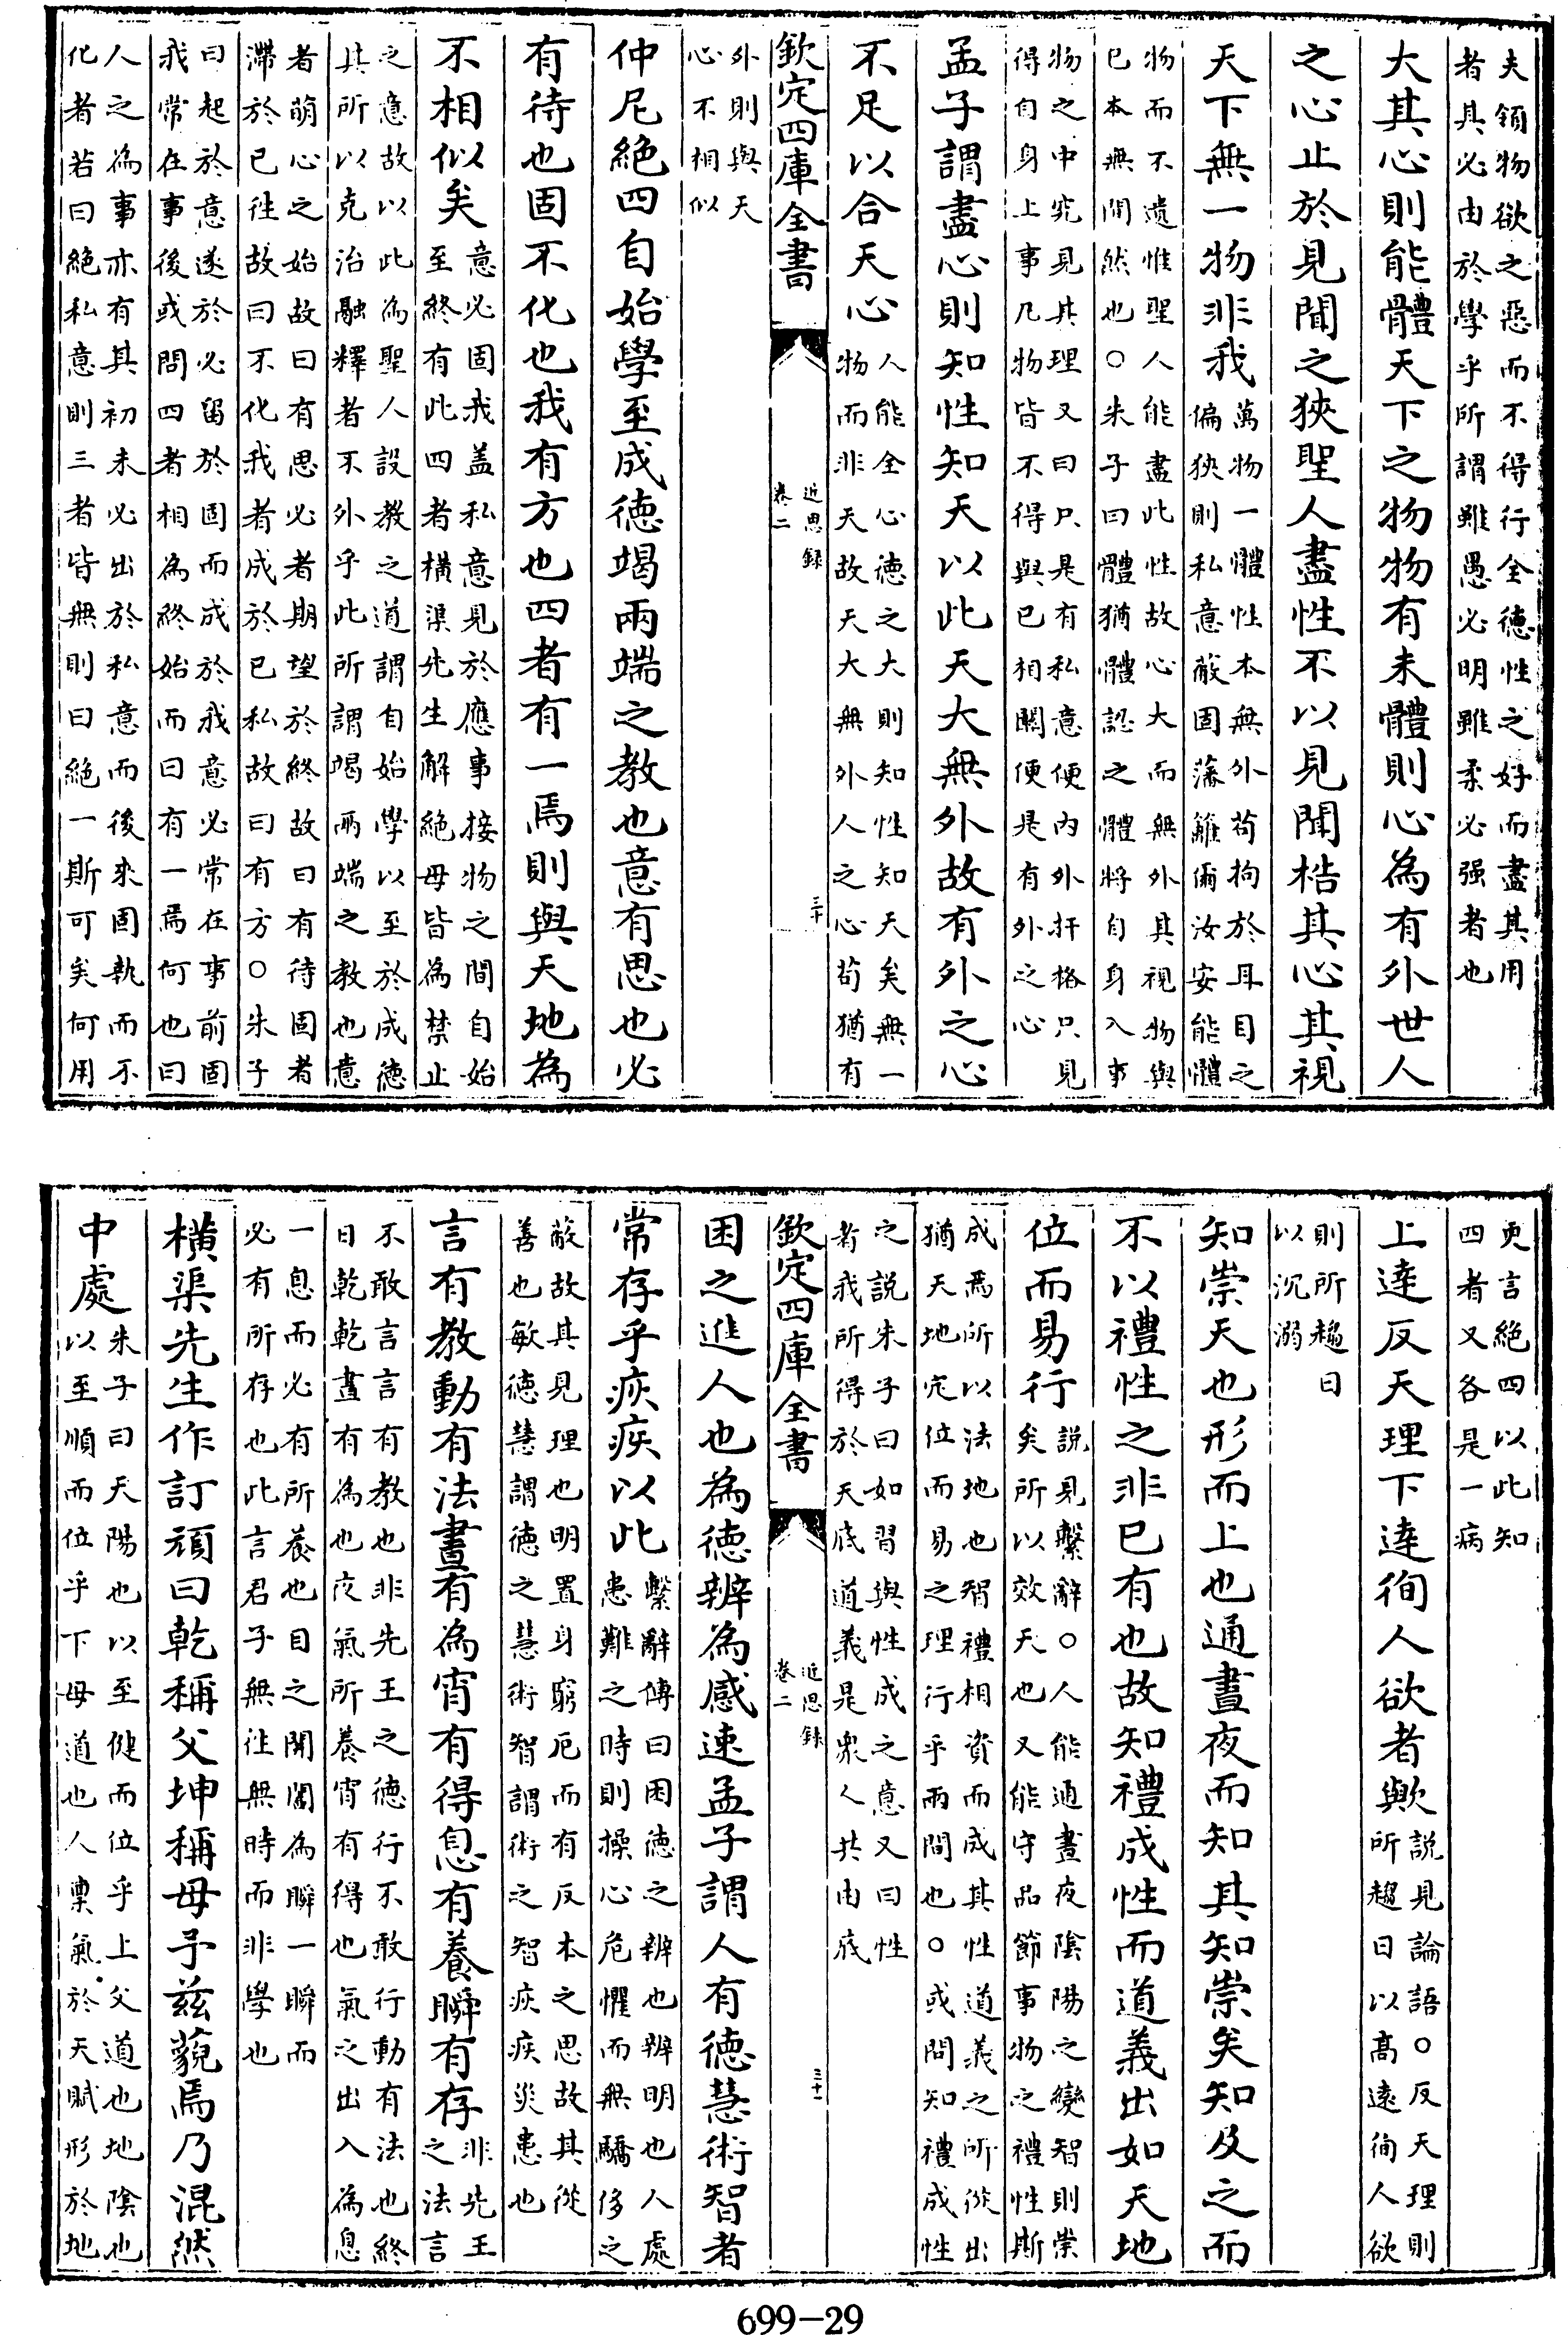 夫領物欲之惡而不得行全德性之好而盡其用
者其必由於學乎所謂雖愚必明雖柔必强者也
大其心則能體天下之物物有未體則心為有外世人
之心止於見聞之狹聖人盡性不以見聞梏其心其視
天下無一物非我萬物一體性本無外苟拘於耳目之
偏狹則私意蔽固藩籬爾汝安能體
物而不遺惟聖人能盡此性故心大而無外其視物與
已本無間然也○朱子曰體猶體認之體將自身入事
物之中究見其理又曰只是有私意便内外扞格只見
得自身上事凡物皆不得與已相關便是有外之心
孟子謂盡心則知性知天以此天大無外故有外之心
不足以合天心人能全心德之大則知性知天矣無一
物而非天故天大無外人之心苟猶有
欽定四庫全書
近思録
卷二
三十
外則與天
心不相似
仲尼絶四自始學至成德竭兩端之教也意有思也必
有待也固不化也我有方也四者有一焉則與天地為
不相似矣意必固我盖私意見於應事接物之間自始
至終有此四者橫渠先生解絶毋皆為禁止
之意故以此為聖人設教之道謂自始學以至於成德
其所以克治融釋者不外乎此所謂竭兩端之教也意
者萌心之始故曰有思必者期望於終故曰有待固者
滯於已往故曰不化我者成於已私故曰有方○朱子
曰起於意遂於必留於固而成於我意必常在事前固
我常在事後或問四者相為終始而曰有一焉何也曰
人之為事亦有其初未必出於私意而後來固執而不
化者若曰絶私意則三者皆無則曰絶一斯可矣何用
更言絶四以此知
四者又各是一病
上達反天理下達徇人欲者歟說見論語○反天理則
所趨日以高遠徇人欲
則所趨日
以沉溺
知崇天也形而上也通晝夜而知其知崇矣知及之而
不以禮性之非已有也故知禮成性而道義出如天地
位而易行說見繫辭○人能通晝夜隂陽之變智則崇
矣所以效天也又能守品節事物之禮性斯
成焉所以法地也智禮相資而成其性道義之所從出
猶天地定位而易之理行乎兩間也○或問知禮成性
之說朱子曰如習與性成之意又曰性
者我所得於天底道義是衆人共由底
欽定四庫全書
近思録
卷二
三十一
困之進人也為德辨為感速孟子謂人有德慧術智者
常存乎疢疾以此繫辭傳曰困德之辨也辨明也人處
患難之時則操心危懼而無驕侈之
蔽故其見理也明置身窮厄而有反本之思故其從
善也敏德慧謂德之慧術智謂術之智疢疾災患也
言有教動有法晝有為宵有得息有養瞬有存非先王
之法言
不敢言言有教也非先王之德行不敢行動有法也終
日乾乾晝有為也夜氣所養宵有得也氣之出入為息
一息而必有所養也目之開闔為瞬一瞬而
必有所存也此言君子無往無時而非學也
橫渠先生作訂頑曰乾稱父坤稱母予兹藐焉乃混然
中處朱子曰天陽也以至健而位乎上父道也地隂也
以至順而位乎下母道也人稟氣於天賦形於地
699-29